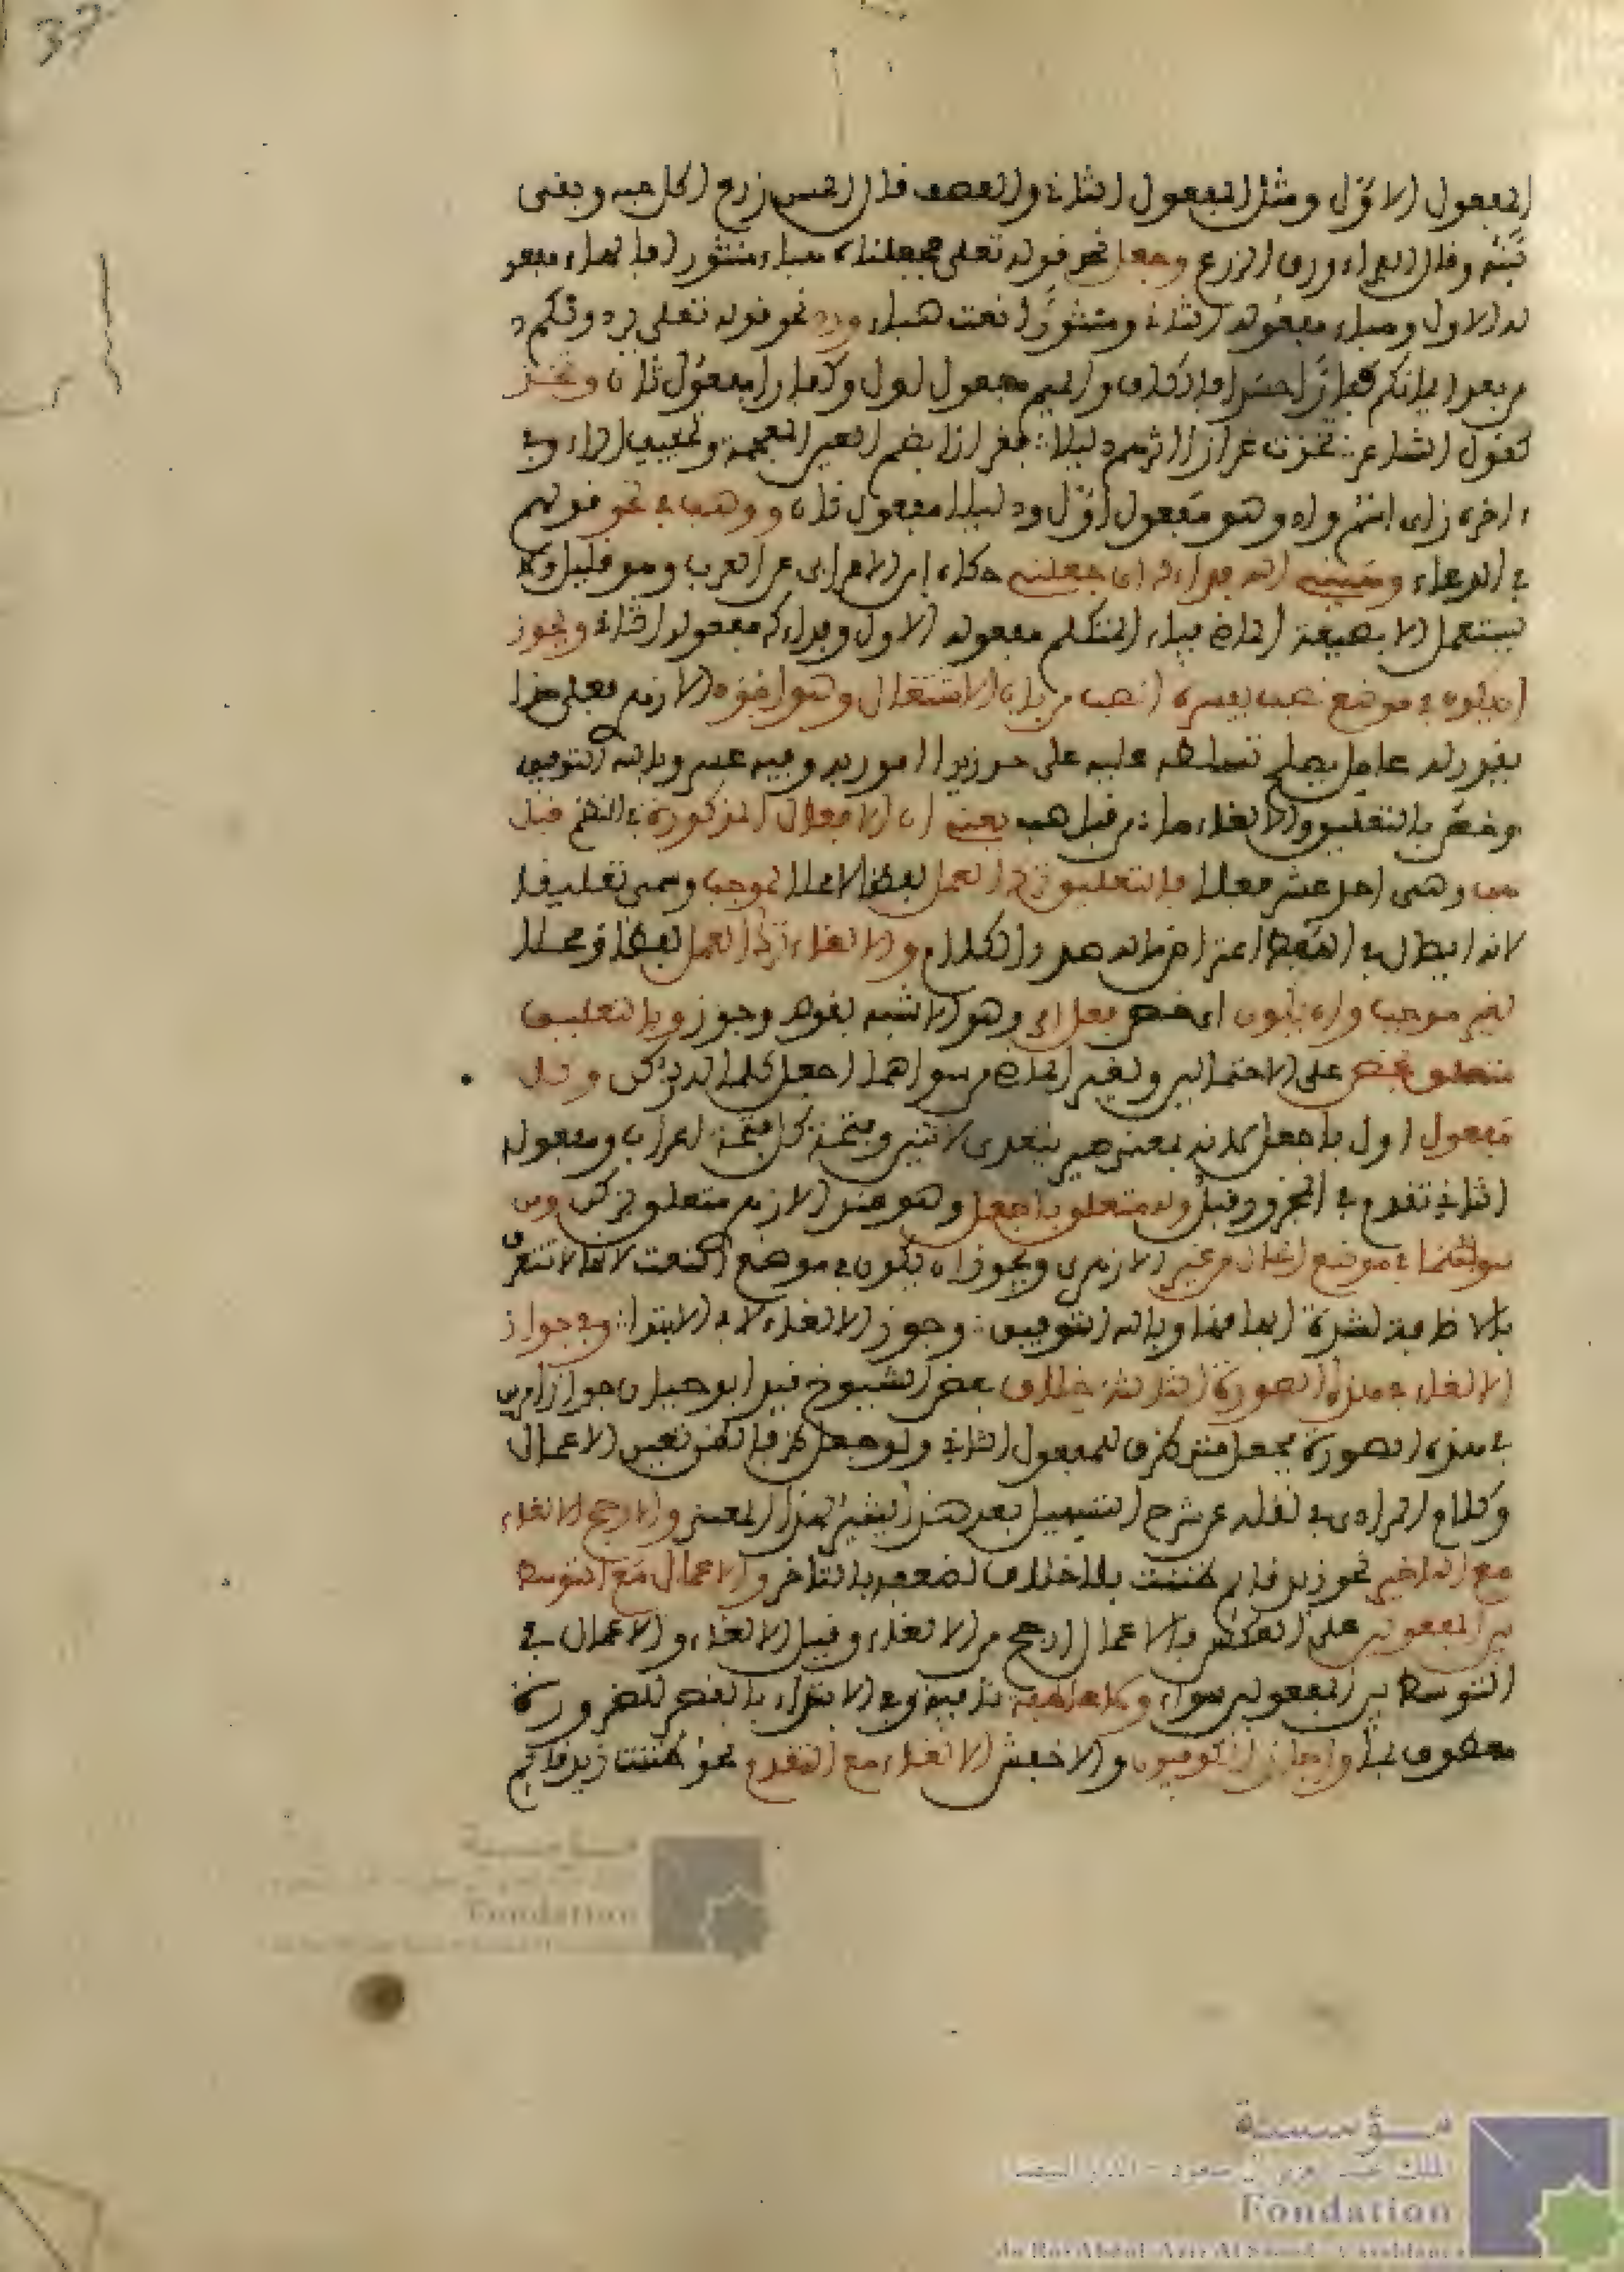 37
المفعول الاول ومثل المفعول الثانى والعصف قال الحسن زرع اكل حبه وبقى
تبنه وقال الفراء ورق الزرع وجعل نحو قوله تعلى فجعلناه هباء منثورا فالهاء مفعو
له الاول وهباء مفعوله الثانى ومنثورا نعت هباء ورد نحو قوله تعلى يردونكم
من بعد ايمانكم كفارا حسدا فالكاف والميم مفعول اول وكفارا مفعول ثان وتخذ
كقول الشاعر تخذت غراز اثرهم دليلا فغراز بضم الغين المعجمة وتخفيف الراء وفى
ءاخره زاى اسم واد وهو مفعول اول ودليلا مفعول ثان ووهب فى نحو قولهم
فى الدعاء وهبنى الله فداءك اى جعلنى حكاه ابن الاعرابى عن العرب وهو قليل ولا
يستعمل الا بصيغة الماضى فياء المتكلم مفعوله الاول وفداءك مفعوله الثانى ويجوز
ان يكون فى موضع نصب يفسره انصب من باب الاشتغال وهو اختيار الازهرى فعلى هذا
يقدر له عامل يصلح تسلطه عليه على حد زيدا امرر به وفيه عسر وبالله التوفيق
وخص بالتعليق والالغاء ما من قبل هب يعنى ان الافعال المذكورة فى النظم قبل
هب وهى احد عشر فعلا فالتعليق ترك العمل لفظا لا محلا لموجب وسمى تعليقا
لانه ابطال فى اللفظ اعتراض ماله صدر الكلام والالغاء ترك العمل لفظا ومحلا
لغير موجب وان يكون اى خص فعل امر وهو الاشبه بقوله وجوز وبالتعليق
متعلق بخص على الاحتمالين ولغير الماض من سواهما اجعل كل ما له زكن وكل
مفعول اول باجعل لانه بمعنى صير يتعدى لاثنين وفتحة كل فتحة اعراب ومفعوله
الثانى تقدم فى المجرور قبله وله متعلق باجعل وهو عند الازهرى متعلق بزكن ومن
سواهما فى موضع الحال من غير الازهرى ويجوز ان يكون فى موضع النعت لانها لا تتعرف
بالاضافة لشدة ابهامها وبالله التوفيق وجوز الالغاء لا فى الابتدا وفى جواز
الالغاء فى هذه الصورة الثالثة خلاف بعض الشيوخ قيد ابو حيان جواز الامرين
فى هذه الصورة بجعل الظرف للمفعول الثانى ولو جعل ظرفا لظن تعين الاعمال
وكلام المرادى فى نقله عن شرح التسهيل بعد هذا يشير لهذا المعنى والارجح الالغاء
مع التاخير نحو زيد قايم ظننت بلا خلاف لضعفه بالتاخر والاعمال مع التوسط
بين المفعولين على العكس فالاعمال ارجح من الالغاء وقيل الالغاء والاعمال فى
التوسط بين المفعولين سواء وفى الابتداء بالقصر للضرورة
معطوف واجاز الكوفيون والاخفش الالغاء مع التقدم نحو ظننت زيد قايم
مؤسسة
Fondation
مؤسسة
الملك عبد العزيز آل سعود - الدار البيضاء
Fondation
du Roi Abdul-Aziz Al Saoud - Casablanca